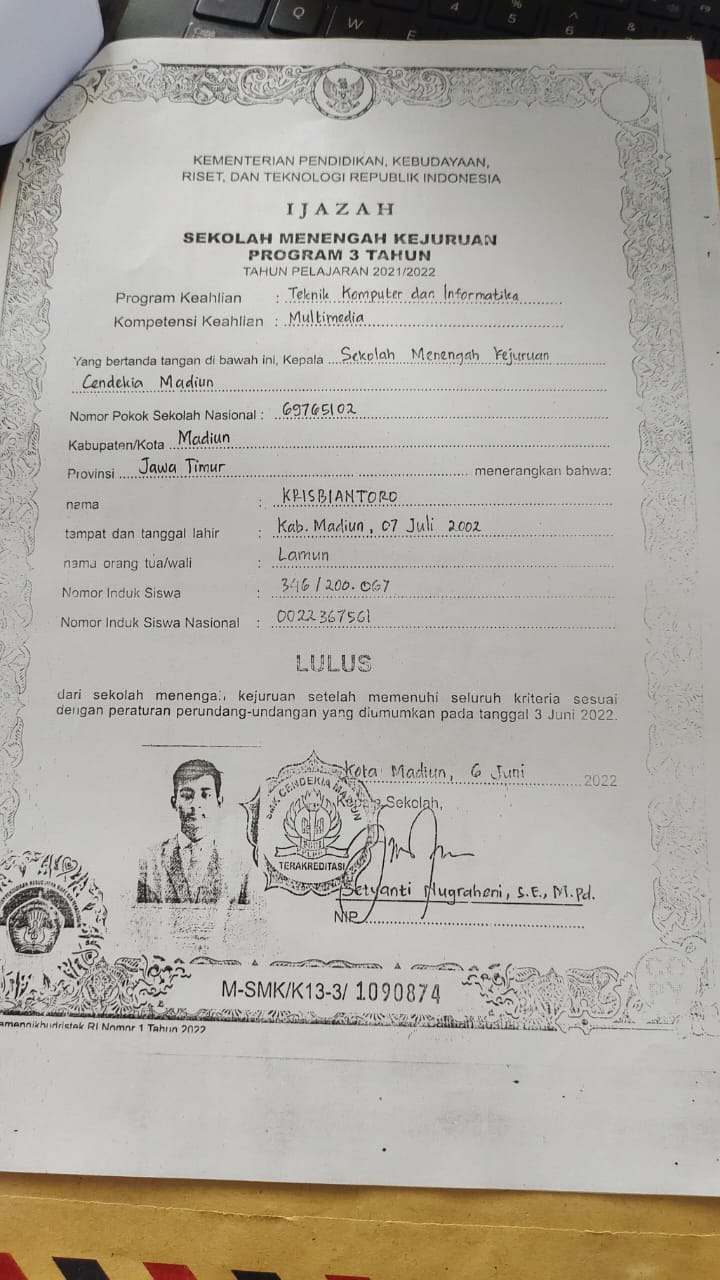 Q W E 4 % 5 ^ 6 &
Caps
KEMENTERIAN PENDIDIKAN, KEBUDAYAAN,
RISET, DAN TEKNOLOGI REPUBLIK INDONESIA
IJAZAH
SEKOLAH MENENGAH KEJURUAN
PROGRAM 3 TAHUN
TAHUN PELAJARAN 2021/2022
Program Keahlian : Teknik Komputer dan Informatika
Kompetensi Keahlian : Multimedia
Yang bertanda tangan di bawah ini, Kepala Sekolah Menengah Kejuruan
Cendekia Madiun
Nomor Pokok Sekolah Nasional : 69765102
Kabupaten/Kota Madiun
Provinsi Jawa Timur menerangkan bahwa:
nama : KRISBIANTORO
tampat dan tanggal lahir : Kab. Madiun, 07 Juli 2002
nama orang tua/wali : Lamun
Nomor Induk Siswa : 346/200.067
Nomor Induk Siswa Nasional : 0022367561
LULUS
dari sekolah menengah kejuruan setelah memenuhi seluruh kriteria sesuai
dengan peraturan perundang-undangan yang diumumkan pada tanggal 3 Juni 2022.
Kota Madiun, 6 Juni 2022
Kepala Sekolah,
SMK CENDEKIA MADIUN
TERAKREDITASI
Setyanti Nugraheni, S.E., M.Pd.
NIP
M-SMK/K13-3/ 1090874
RI Nomor 1 Tahun 2022